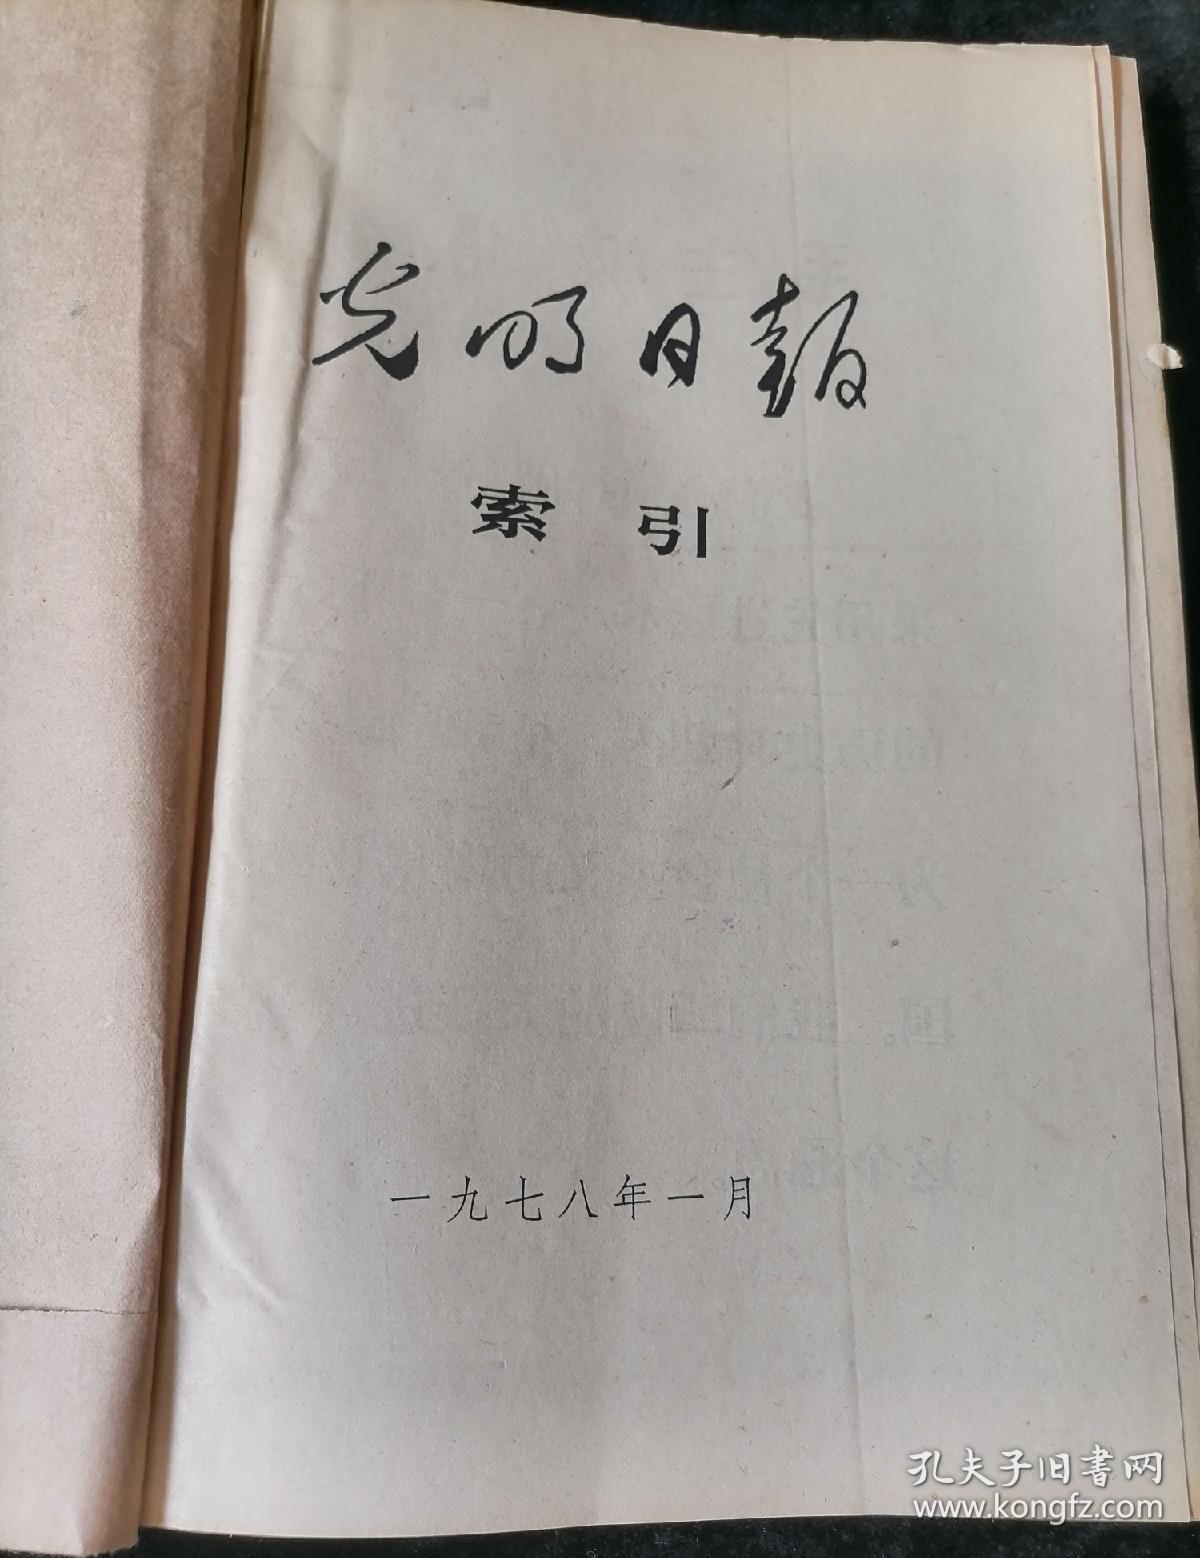 光明日報
索引
一九七八年一月
孔夫子旧書网
www.kongfz.com